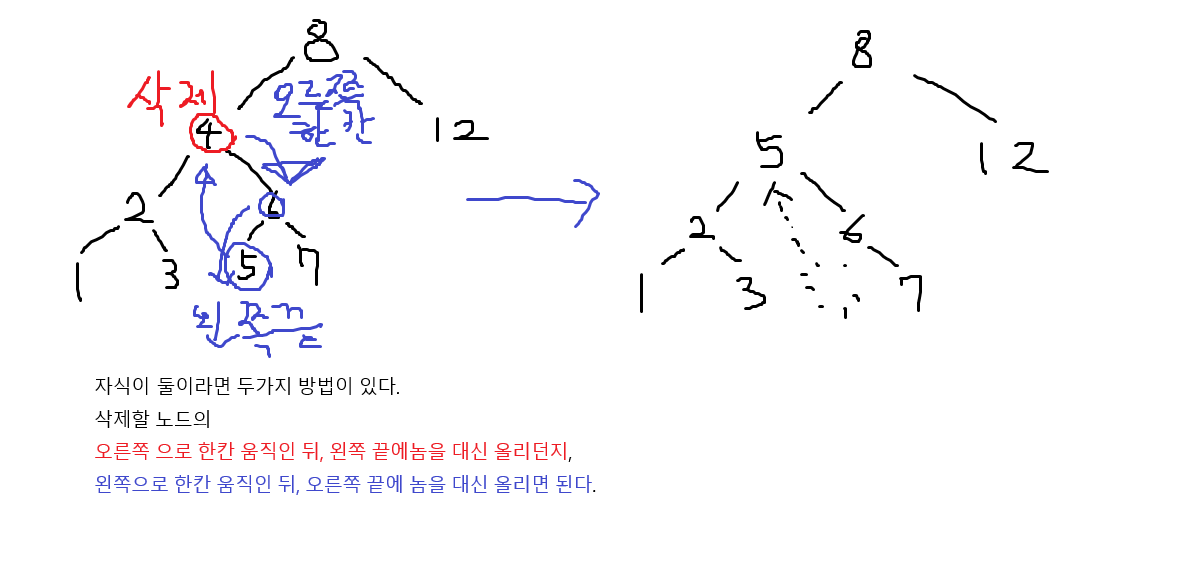 8
8
삭제
오른쪽
한칸
4
12
5
12
2
6
2
6
1
3
5
7
1
3
7
왼쪽끝
자식이 둘이라면 두가지 방법이 있다.
삭제할 노드의
오른쪽 으로 한칸 움직인 뒤, 왼쪽 끝에놈을 대신 올리던지,
왼쪽으로 한칸 움직인 뒤, 오른쪽 끝에 놈을 대신 올리면 된다.